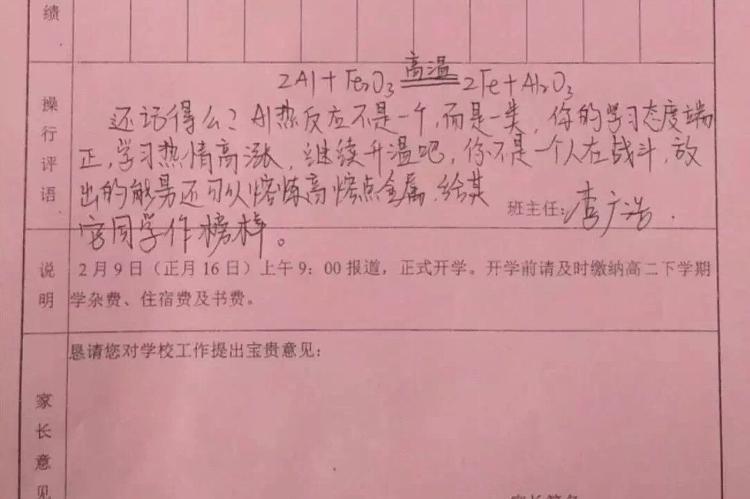 绩
2Al+Fe₂O₃ 高温 2Fe+Al₂O₃
操行评语
还记得么？Al热反应不是一个，而是一类，你的学习态度端
正，学习热情高涨，继续升温吧，你不是一个人在战斗，放
出的能量还可以熔炼高熔点金属，给其
它同学作榜样。
班主任：李广浩.
说明
2月9日（正月16日）上午9：00报道，正式开学。开学前请及时缴纳高二下学期
学杂费、住宿费及书费。
恳请您对学校工作提出宝贵意见：
家长意见